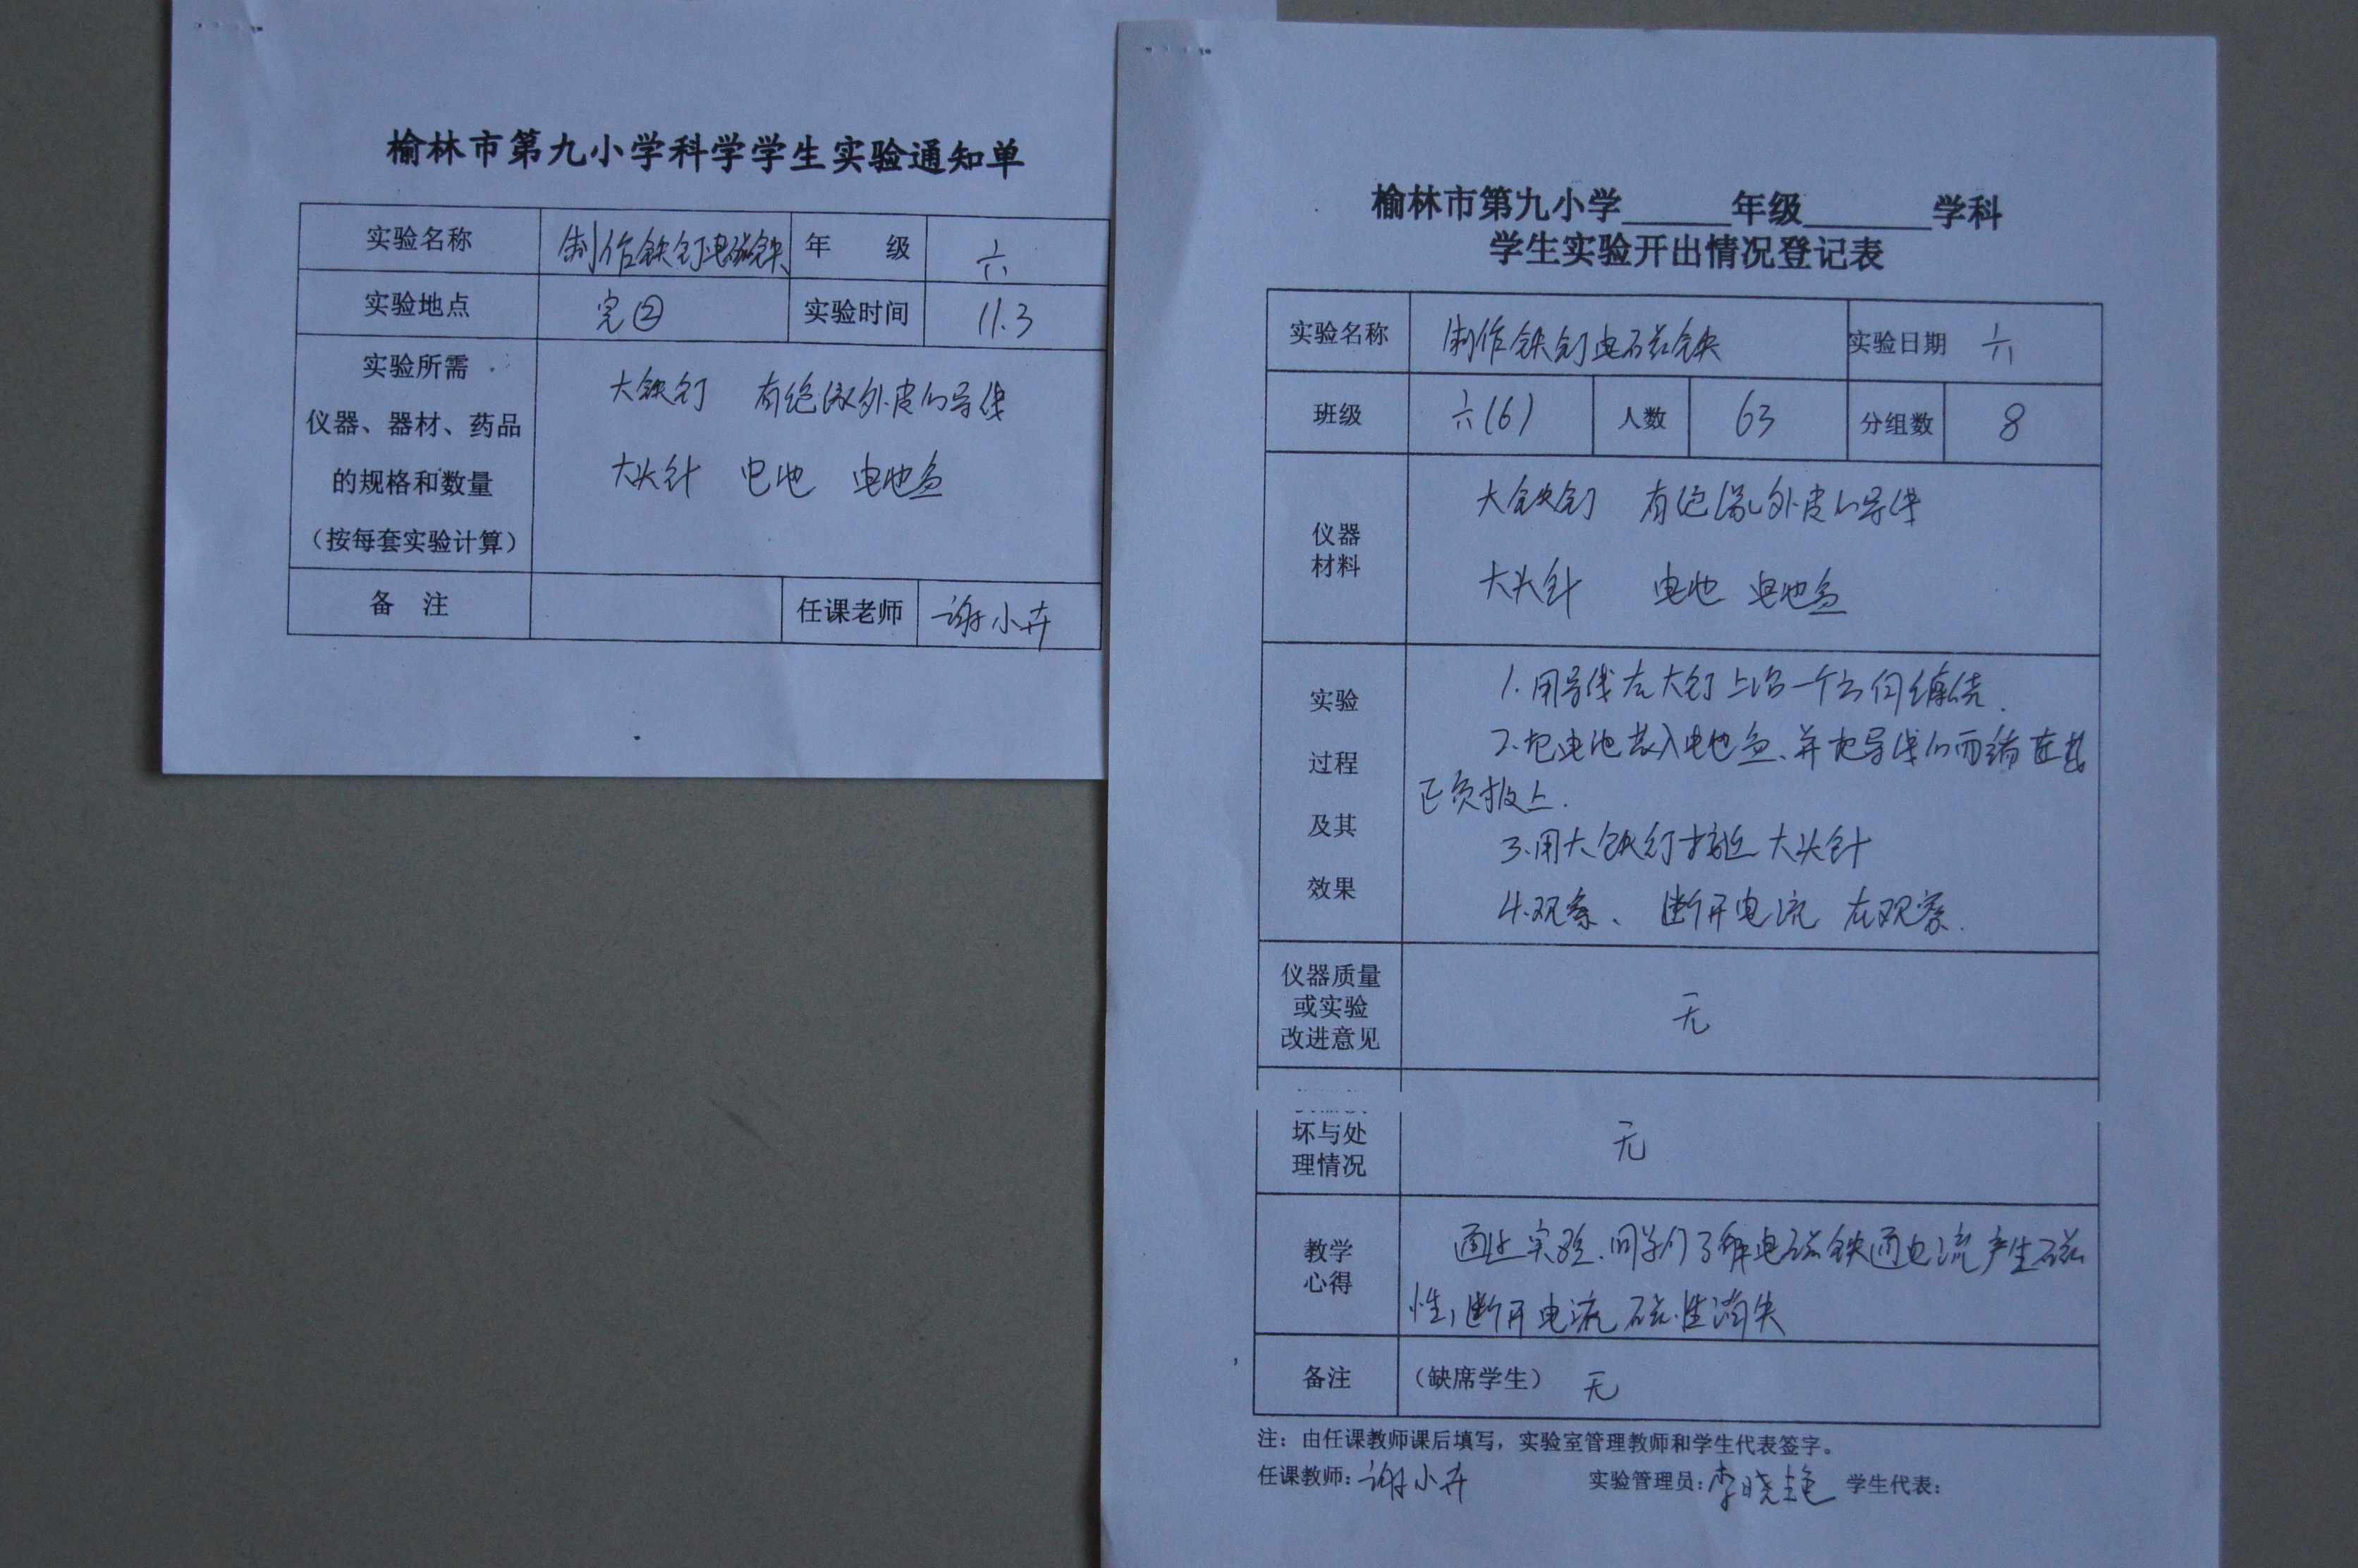 榆林市第九小学科学学生实验通知单
实验名称 制作铁钉电磁铁 年 级 六
实验地点 实② 实验时间 11.3
实验所需
仪器、器材、药品
的规格和数量
(按每套实验计算)
大铁钉 有绝缘外皮的导线
大头针 电池 电池盒
备 注 任课老师 谢小卉
榆林市第九小学______年级_______学科
学生实验开出情况登记表
实验名称 制作铁钉电磁铁 实验日期 六
班级 六(6) 人数 63 分组数 8
仪器
材料
大铁钉 有绝缘外皮的导线
大头针 电池 电池盒
实验
过程
及其
效果
1.用导线在大钉上沿一个方向缠绕.
2.把电池装入电池盒、并把导线的两端在其
正负极上.
3.用大铁钉接近大头针
4.观察、断开电流 在观察.
仪器质量
或实验
改进意见
无
坏与处
理情况
无
教学
心得
通过实验.同学们了解电磁铁通电流产生磁
性,断开电流磁性消失
备注 (缺席学生) 无
注:由任课教师课后填写,实验室管理教师和学生代表签字。
任课教师:谢小卉 实验管理员:李晓艳 学生代表: